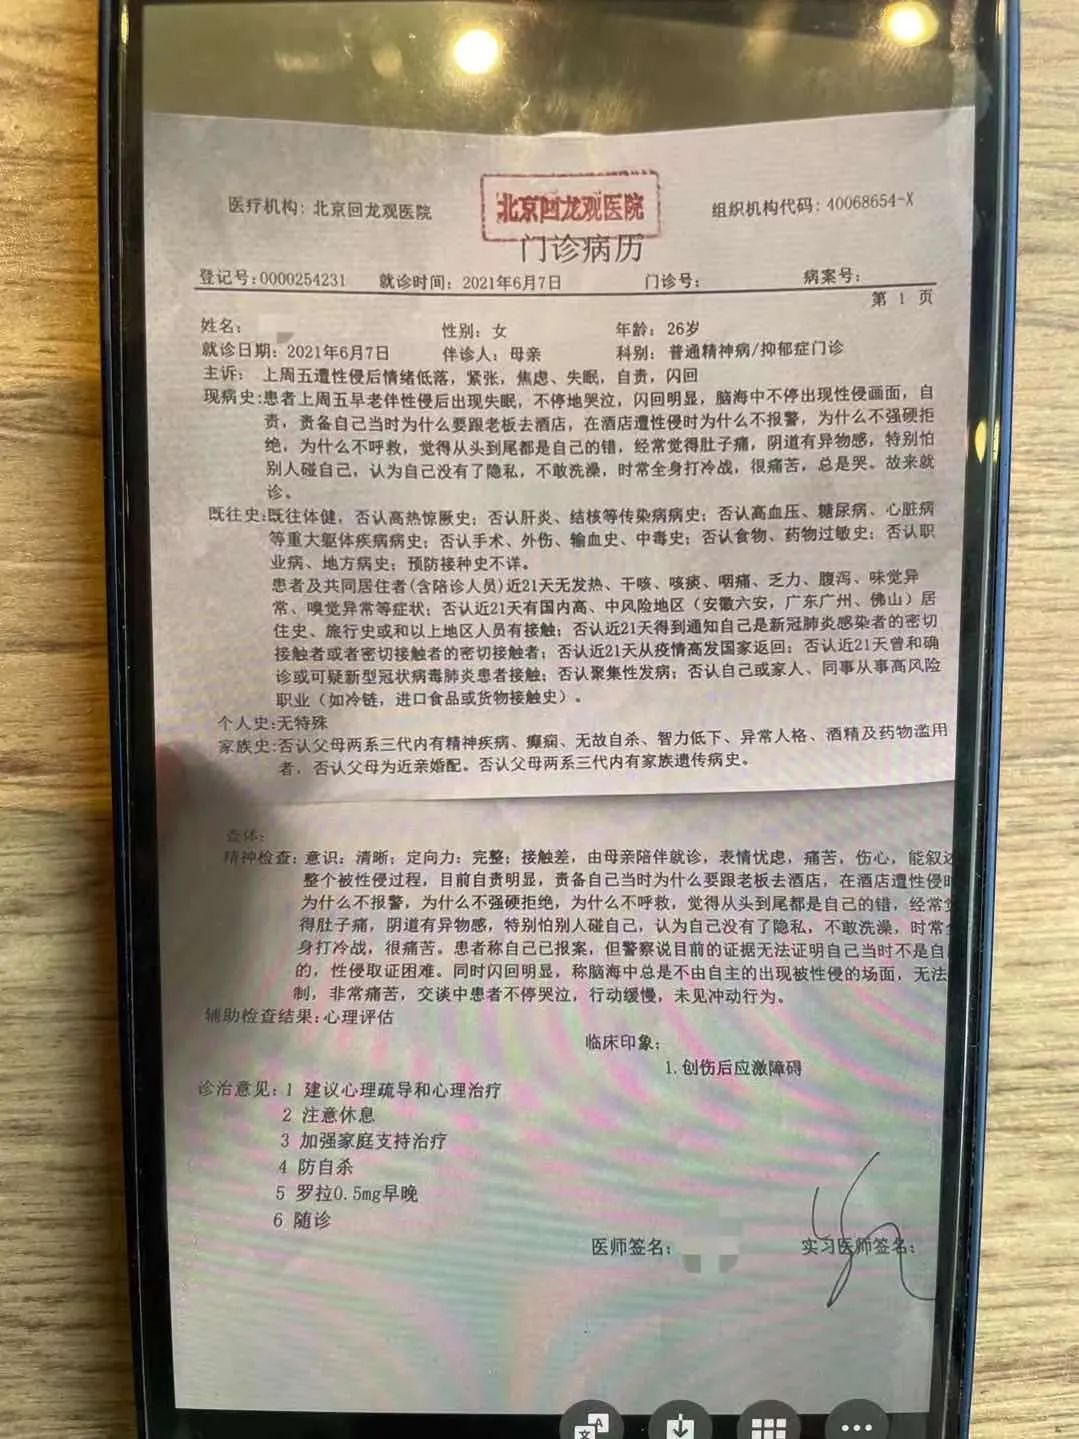 北京回龙观医院
医疗机构: 北京回龙观医院
组织机构代码: 40068654-X
门诊病历
登记号:0000254231 就诊时间: 2021年6月7日 门诊号: 病案号:
第 1 页
姓名: 性别: 女 年龄: 26岁
就诊日期: 2021年6月7日 伴诊人: 母亲 科别: 普通精神病/抑郁症门诊
主诉: 上周五遭性侵后情绪低落, 紧张, 焦虑、失眠, 自责, 闪回
现病史:患者上周五早老伴性侵后出现失眠, 不停地哭泣, 闪回明显, 脑海中不停出现性侵画面, 自
责, 责备自己当时为什么要跟老板去酒店, 在酒店遭性侵时为什么不报警, 为什么不强硬拒
绝, 为什么不呼救, 觉得从头到尾都是自己的错, 经常觉得肚子痛, 阴道有异物感, 特别怕
别人碰自己, 认为自己没有了隐私, 不敢洗澡, 时常全身打冷战, 很痛苦, 总是哭。故来就
诊。
既往史:既往体健, 否认高热惊厥史; 否认肝炎、结核等传染病病史; 否认高血压、糖尿病、心脏病
等重大躯体疾病病史; 否认手术、外伤、输血史、中毒史; 否认食物、药物过敏史; 否认职
业病、地方病史; 预防接种史不详。
患者及共同居住者(含陪诊人员)近21天无发热、干咳、咳痰、咽痛、乏力、腹泻、味觉异
常、嗅觉异常等症状; 否认近21天有国内高、中风险地区 (安徽六安, 广东广州、佛山) 居
住史、旅行史或和以上地区人员有接触; 否认近21天得到通知自己是新冠肺炎感染者的密切
接触者或者密切接触者的密切接触者; 否认近21天从疫情高发国家返回; 否认近21天曾和确
诊或可疑新型冠状病毒肺炎患者接触; 否认聚集性发病; 否认自己或家人、同事从事高风险
职业 (如冷链, 进口食品或货物接触史) 。
个人史:无特殊
家族史:否认父母两系三代内有精神疾病、癫痫、无故自杀、智力低下、异常人格、酒精及药物滥用
者, 否认父母为近亲婚配。否认父母两系三代内有家族遗传病史。
查体:
精神检查: 意识: 清晰; 定向力: 完整; 接触差, 由母亲陪伴就诊, 表情忧虑, 痛苦, 伤心, 能叙述
整个被性侵过程, 目前自责明显, 责备自己当时为什么要跟老板去酒店, 在酒店遭性侵时
为什么不报警, 为什么不强硬拒绝, 为什么不呼救, 觉得从头到尾都是自己的错, 经常觉
得肚子痛, 阴道有异物感, 特别怕别人碰自己, 认为自己没有了隐私, 不敢洗澡, 时常全
身打冷战, 很痛苦。患者称自己已报案, 但警察说目前的证据无法证明自己当时不是自
的, 性侵取证困难。同时闪回明显, 称脑海中总是不由自主的出现被性侵的场面, 无法
制, 非常痛苦, 交谈中患者不停哭泣, 行动缓慢, 未见冲动行为。
辅助检查结果:心理评估
临床印象:
1.创伤后应激障碍
诊治意见: 1 建议心理疏导和心理治疗
2 注意休息
3 加强家庭支持治疗
4 防自杀
5 罗拉0.5mg早晚
6 随诊
医师签名: 实习医师签名: